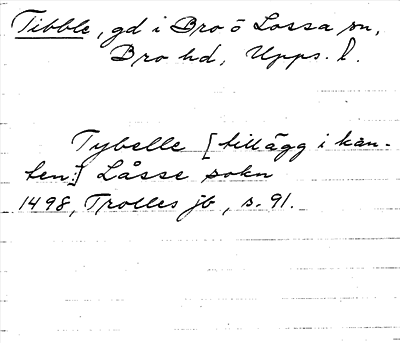 Tibble, gd i Bro o Lossa sn,
Bro hd, Upps. l.
Tybelle [tillägg i kan-
ten:] Låsse sokn
1498, Trolles jb, s. 91.